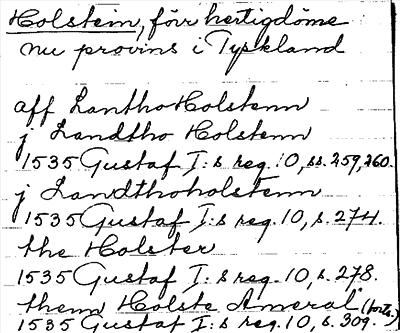 Holstein, förr hertigdöme
nu provins i Tyskland
aff Lantho Holstenn
j Landtho Holstenn
1535 Gustaf I:s reg. 10, ss. 259, 260.
j Landthoholstenn
1535 Gustaf I:s reg. 10, s. 274.
the Holster
1535 Gustaf I:s reg. 10, s. 278.
themm Holste Ameral (forts.)
1535 Gustaf I:s reg. 10, s. 309.